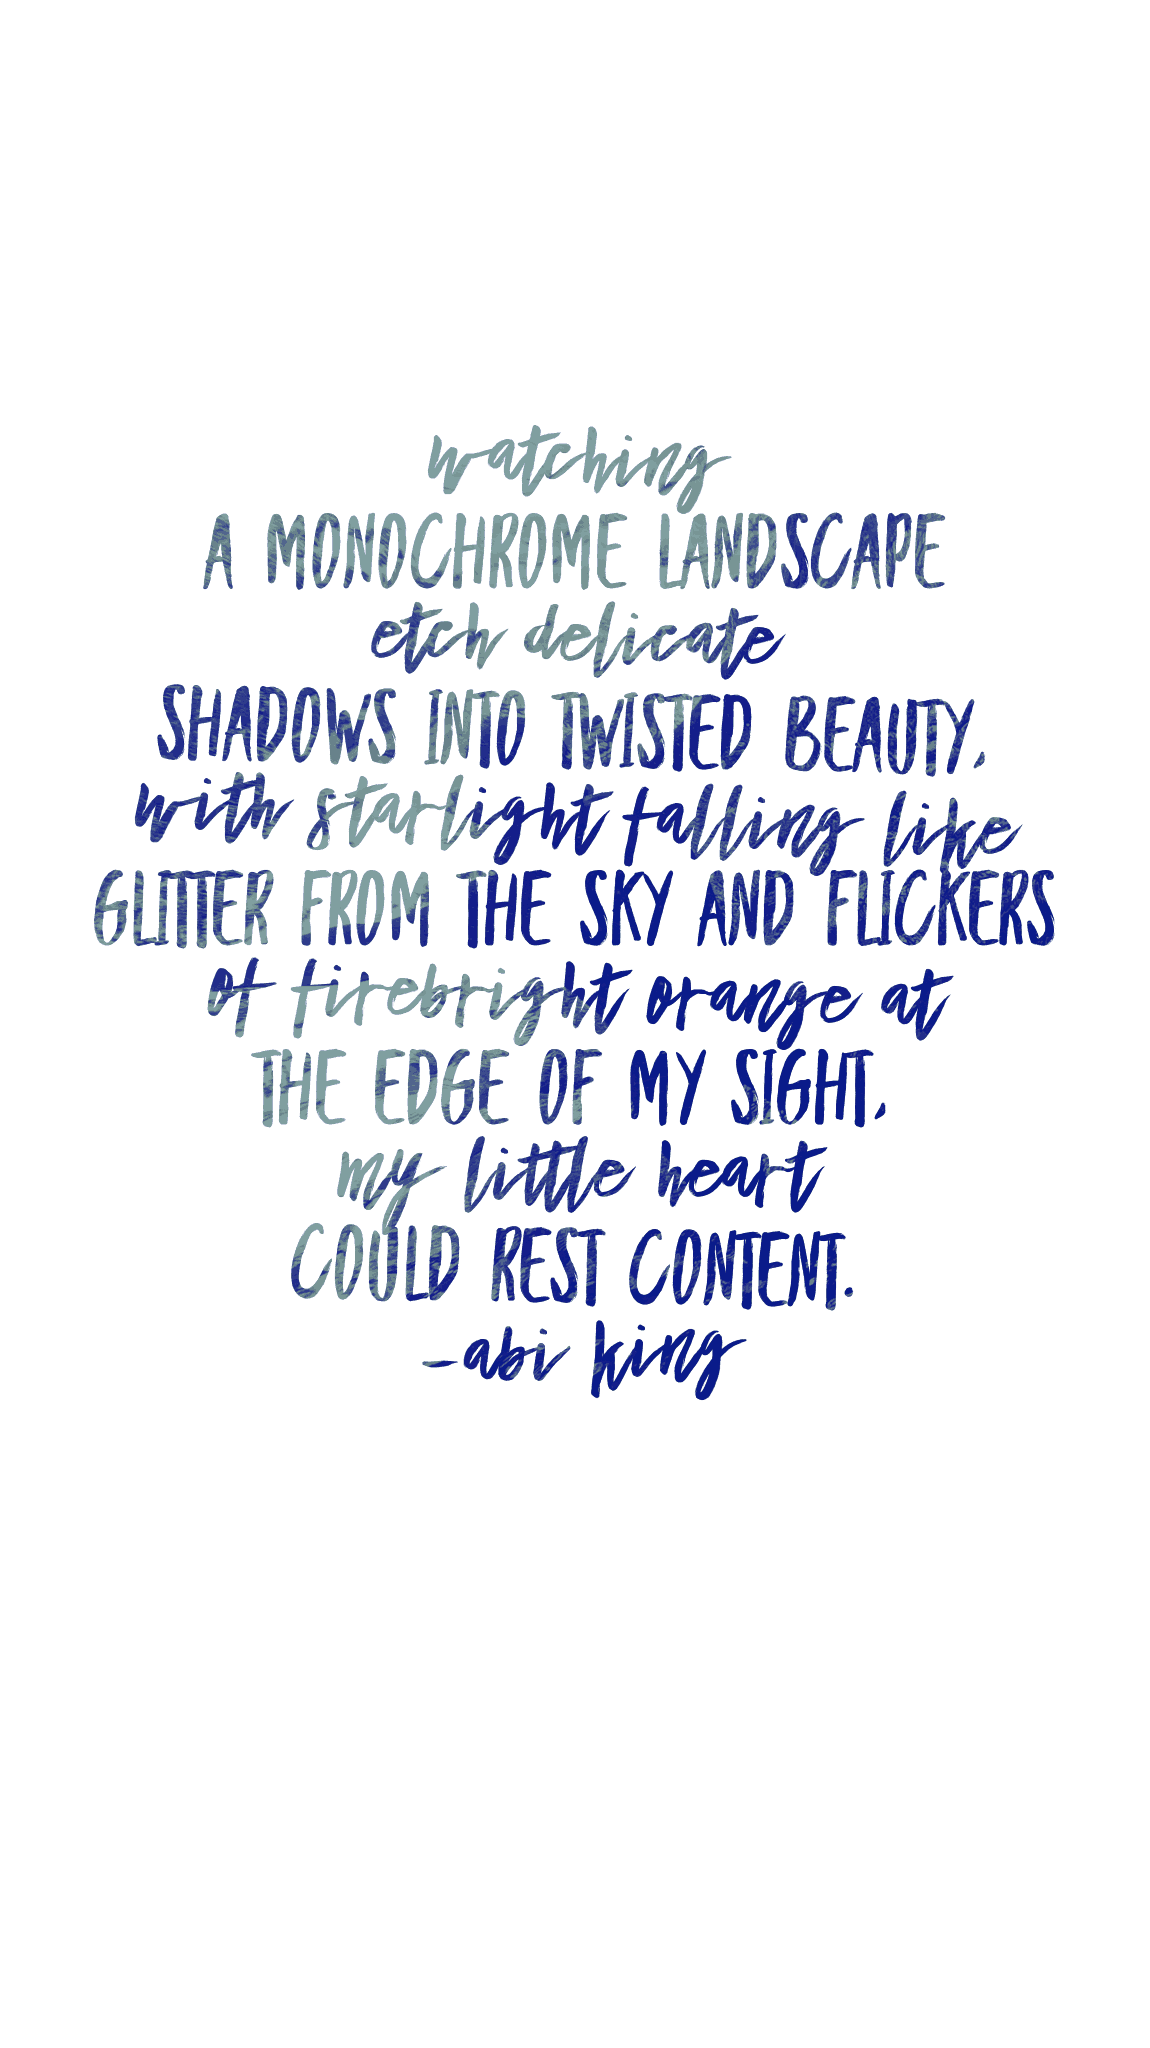 watching
A MONOCHROME LANDSCAPE
etch delicate
SHADOWS INTO TWISTED BEAUTY,
with starlight falling like
GLITTER FROM THE SKY AND FLICKERS
of firebright orange at
THE EDGE OF MY SIGHT,
my little heart
COULD REST CONTENT.
-abi king